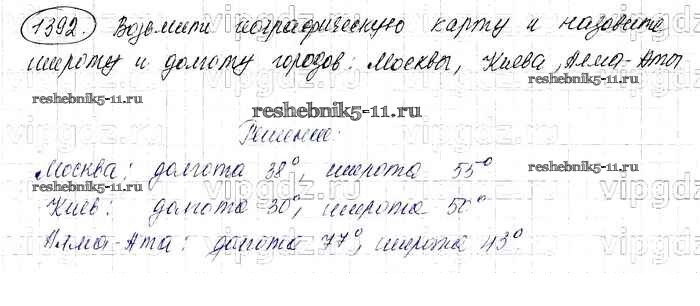 1392. Возьмите географическую карту и назовите
широту и долготу городов: Москвы, Киева, Алма-Аты
reshebnik5-11.ru reshebnik5-11.ru
reshebnik5-11.ru
Решение:
Москва: долгота 38°, широта 55°
reshebnik5-11.ru reshebnik5-11.ru
Киев: долгота 30°, широта 50°
Алма-Ата: долгота 77°, широта 43°